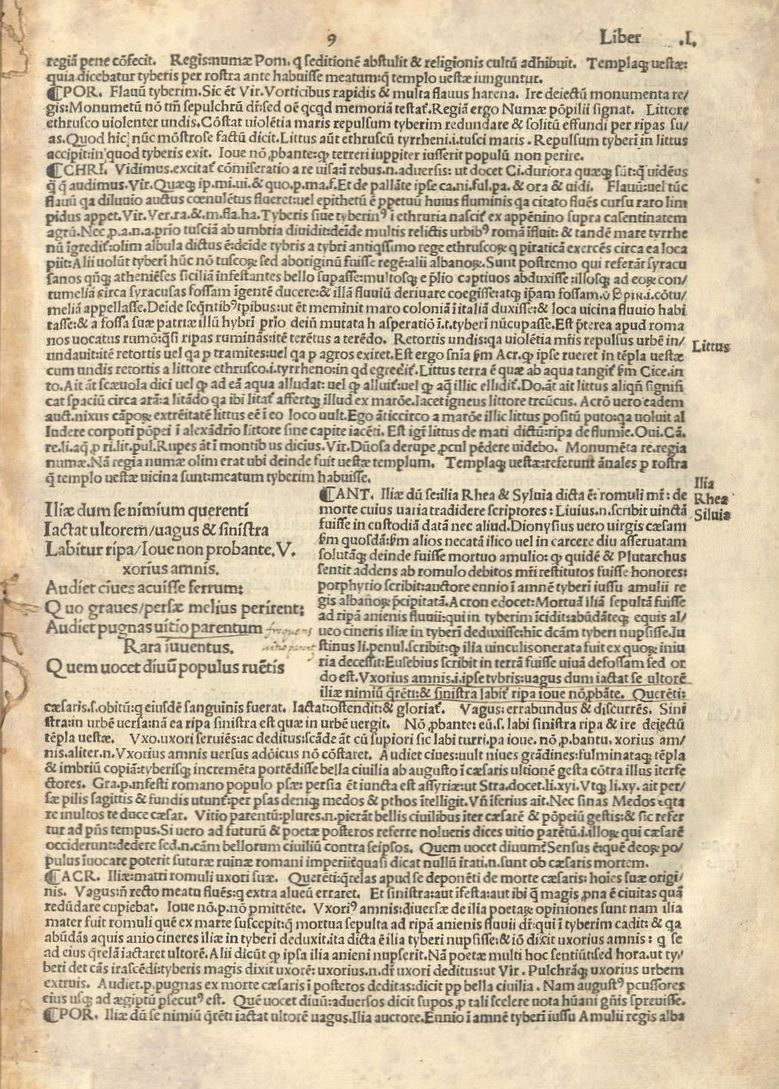 9 Liber .I.
regiã pene cõfecit. Regis:numæ Pom. q seditionẽ abstulit & religionis cultũ adhibuit. Templaqꝫ uestæ:
quia dicebatur tyberis per rostra ante habuisse meatum:q̃ templo uestæ iunguntur.
⁋POR. Flauũ tyberim. Sic ẽt Vir. Vorticibus rapidis & multa flauus harena. Ire deiectũ monumenta re/
gis:Monumetũ nõ tm̃ sepulchrũ dr̃:sed oẽ qcqd memoriã testat̃. Regiã ergo Numæ põpilii signat. Littore
ethrusco uiolenter undis. Cõstat uiolẽtia maris repulsum tyberim redundare & solitũ effundi per ripas su/
as. Quod hic nũc mõstrose factũ dicit. Littus aũt ethruscũ tyrrheni.i.tusci maris. Repulsum tyberĩ in littus
accipit:in quod tyberis exit. Ioue nõ ꝓbante:qꝫ terreri iuppiter iusserit populũ non perire.
⁋CHRI. Vidimus.excitat̃ cõmiseratio a re uisa:ñ rebus.n.aduersis: ut docet Ci.duriora quæqꝫ sũt:q̃ uidẽus
q̃ q̃ audimus.Vir. Quæqꝫ ip.mi.ui.& quo.p.ma.f. Et de pallãte ipse ca.ni.ful.pa.& ora & uidi. Flauũ:uel tũc
flauũ qa diluuio auctus cœnulẽtus flueret:uel epithetũ ẽ ꝑpetuũ huius fluminis qa citato flués cursu raro lim
pidus appet. Vir. Ver.ra.&.m.fla.ha. Tyberis siue tyberinꝰ i ethruria nascit̃ ex appẽnino supra casentinatem
agrũ. Nec.p.a.na.prio tusciã ab umbria diuidit:deĩde multis relictis urbibꝰ romã ĩfluit: & tandẽ mare tyrrhe
nũ ĩgredit̃:olim albula dictus ẽ:deide tybris a tybri antiqssimo rege ethruscoꝝ q piraticã exercẽs circa ea loca
piit:Alii uolũt tyberĩ hũc nõ tuscoꝝ sed aboriginũ fuisse regẽ:alii albanoꝝ. Sunt postremo qui referãt syracu
sanos qñqꝫ atheniẽses siciliã infestantes bello supasse:multosqꝫ e p̃lio captiuos abduxisse:illosqꝫ ad eoꝝ con/
tumeliã circa syracusas fossam ĩgentẽ ducere:& illã fluuiũ deriuare coegisse:atqꝫ ip̃am fossam
meliã appellasse. Deide seq̃ntibꝰ tpibus:ut ẽt meminit maro coloniã i italiã duxisse:& loca uicina fluuio habi
tasse:& a fossa suæ patriæ illũ hybri prio deiñ mutata h asperatiõ i.t.tyberi nũcupasse. Est p̃terea apud roma
nos uocatus rumõ:q̃si ripas ruminãs:itẽ terẽtus a terẽdo. Retortis undis:qa uiolẽtia mr̃is repulsus urbẽ in/
undauit:itẽ retortis uel qa p tramites:uel qa p agros exiret. Est ergo sñia ẜm Acr. qꝫ ipse rueret in tẽpla uestæ
cum undis retortis a littore ethrusco.i.tyrrheno:in qd egredit̃. Littus terra ẽ quæ ab aqua tangit̃ ẜm Cice.in
to. Ait ãt scæuola dici uel qꝫ ad eã aqua alludat: uel qꝫ alluit̃:uel qꝫ aq̃ illic ellidit̃. Do.ãt ait littus aliqñ signifi
cat spaciũ circa arã: a litãdo qa ibi litat̃ affertqꝫ illud ex marõe. Iacet igneus littore trcũcus. Acrõ uero eadem
auct.nixus cãpoꝝ extrẽitatẽ littus eẽ i eo loco uult. Ego ãticcirco a marõe illic littus positũ puto:qa uoluit al
ludere corpori põpei i alexãdrio littore sine capite iacẽti. Est igr̃ littus de mati dictũ:ripa de flumie. Oui. Cã.
re.li.aq̃.p ri.lit.pul. Rupes ãt ĩ montibus dicius. Vir. Dũosa derupe ꝓcul pẽdere uidebo. Monumẽta re.regia
numæ. Nã regia numæ olim erat ubi deinde fuit uestæ templum. Templaqꝫ uestæ:referunt ãnales p rostra
q̃ templo uestæ uicina sunt:meatum tyberim habuisse.
Littus
Iliæ dum se nimium querenti
Iactat ultorem/uagus & sinistra
Labitur ripa/Ioue non probante. V.
xorius amnis.
Audiet ciues acuisse ferrum:
Quo graues/persæ melius perirent:
Audiet pugnas uitio parentum
Rara iuuentus.
Quem uocet diuũ populus ruẽtis
⁋CANT. Iliæ dũ se:ilia Rhea & Syluia dicta ẽ: romuli mr̃: de
morte cuius uaria tradidere scriptores: Liuius.n.scribit uinctã
fuisse in custodiã datã nec aliud. Dionysius uero uirgis cæsam
ẜm quosdã:ẜm alios necatã ilico uel in carcere diu asseruatam
solutãqꝫ deinde fuisse mortuo amulio: qꝫ quidẽ & Plutarchus
sentit addens ab romulo debitos mr̃i restitutos fuisse honores:
porphyrio scribit:auctore ennio ĩ amnẽ tyberi iussu amulii re
gis albanoꝝ p̃cipitatã. Acron edocet: Mortuã iliã sepultã fuisse
ad ripã anienis fluuii:qui in tyberim ĩcidit:abũdãteqꝫ equis al/
ueo cineris iliæ in tyberĩ deduxisse:hic dcãm tyberi nupsisse. Iu
stinus li.penul.scribit:qꝫ ilia uinculis onerata fuit ex quoꝝ iniu
ria decessit:Eusebius scribit in terrã fuisse uiuã defossam sed or
do est. Vxorius amnis.i.ipse tybris:uagus dum iactat se ultorẽ
iliæ nimiũ q̃rẽti:& sinistra labit̃ ripa ioue nõ ꝓbãte. Querẽti:
Ilia
Rhea
Siluia
cæsaris.s.obitũ:q eiusdẽ sanguinis fuerat. Iactat:ostendit:& gloriat̃. Vagus:errabundus & discurrẽs. Sini
stra:in urbẽ uersa:nã ea ripa sinistra est quæ in urbẽ uergit. Nõ ꝓbante: eũ.s.labi sinistra ripa & ire deiectũ
tẽpla uestæ. Vxo.uxori seruiẽs:ac deditus:scãde ãt cũ supiori sic labi turri.pa ioue.nõ.ꝓ.bantu.xorius am/
nis.aliter.n.Vxorius amnis uersus adõicus nõ cõstaret. Audiet ciues:uult niues grãdines:fulminatqꝫ tẽpla
& imbriũ copiã:tyberisqꝫ incremẽta portẽdisse bella ciuilia ab augusto i cæsaris ultionẽ gesta cõtra illius iterfe
ctores. Gra.p.infesti romano populo psæ: persia ẽt iuncta est assyriæ:ut Stra.docet.li.xyi.Vtqꝫ li.xy.ait per/
sæ pilis sagittis & fundis utunt̃:per psas deniqꝫ medos & pthos ĩtelligit. Vñ iserius ait. Nec sinas Medos eqta
re inultos te duce cæsar. Vitio parentũ:plures.n.pierãt bellis ciuilibus iter cæsarẽ & põpeiũ gestis:& sic refer
tur ad p̃ns tempus. Si uero ad futurũ & poetæ posteros referre nolueris dices uitio parẽtũ.i.illoꝝ qui cæsarẽ
occiderunt:dedere sed.n.cãm bellorum ciuiliũ contra seipsos. Quem uocet diuum:Sensus ẽ:quẽ deoꝝ po/
pulus iuocare poterit futuræ ruinæ romani imperii:q̃quasi dicat nullũ irati.n.sunt ob cæsaris mortem.
⁋ACR. Iliæ:matri romuli uxori suæ. Querẽti:q̃relas apud se deponẽti de morte cæsaris: hoĩes suæ origi/
nis. Vagus:ñ recto meatu fluẽs:q extra alueũ erraret. Et sinistra:aut ifesta:aut ibi q̃ magis ꝓna ẽ ciuitas quã
redũdare cupiebat. Ioue nõ.p.nõ ꝑmittẽte. Vxoriꝰ amnis:diuersæ de ilia poetaꝝ opiniones sunt nam ilia
mater fuit romuli quẽ ex marte suscepit:q̃ mortua sepulta ad ripã anienis fluuii dr̃:qui ĩ tyberim cadit: & qa
abũdãs aquis anio cineres iliæ in tyberĩ deduxit.ita dicta ẽ ilia tyberi nupsisse:& iõ dixit uxorius amnis: q se
ad eius q̃relã iactaret ultorẽ. Alii dicũt qꝫ ipsa ilia anieni nupserit. Nã poetæ multi hoc sentiũt:sed hora.ut ty/
beri det cãs irascẽdi:tyberis magis dixit uxorẽ: uxorius.n.dr̃ uxori deditus:ut Vir. Pulchrãqꝫ uxorius urbem
extruis. Audiet.p.pugnas ex morte cæsaris ĩ posteros deditas:dicit pp bella ciuilia. Nam augustꝰ pcussores
eius usqꝫ ad ægiptũ ꝓsecutꝰ est. Quẽ uocet diuũ:aduersos dicit supos ꝓ tali scelere uota hũani gñis spreuisse.
⁋POR. Iliæ dũ se nimiũ q̃rẽti: iactat ultorẽ uagus. Ilia auctore. Ennio ĩ amnẽ tyberĩ iussu Amulii regis alba